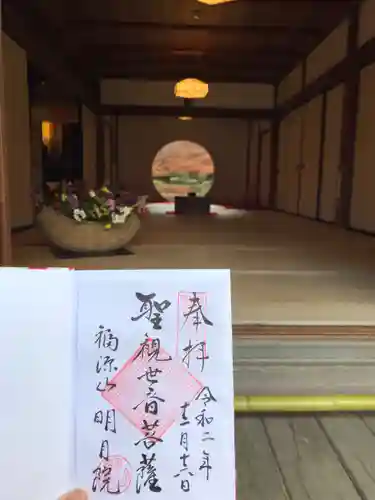 奉拝
令和二年
十二月十六日
聖観世音菩薩
福源山
明月院